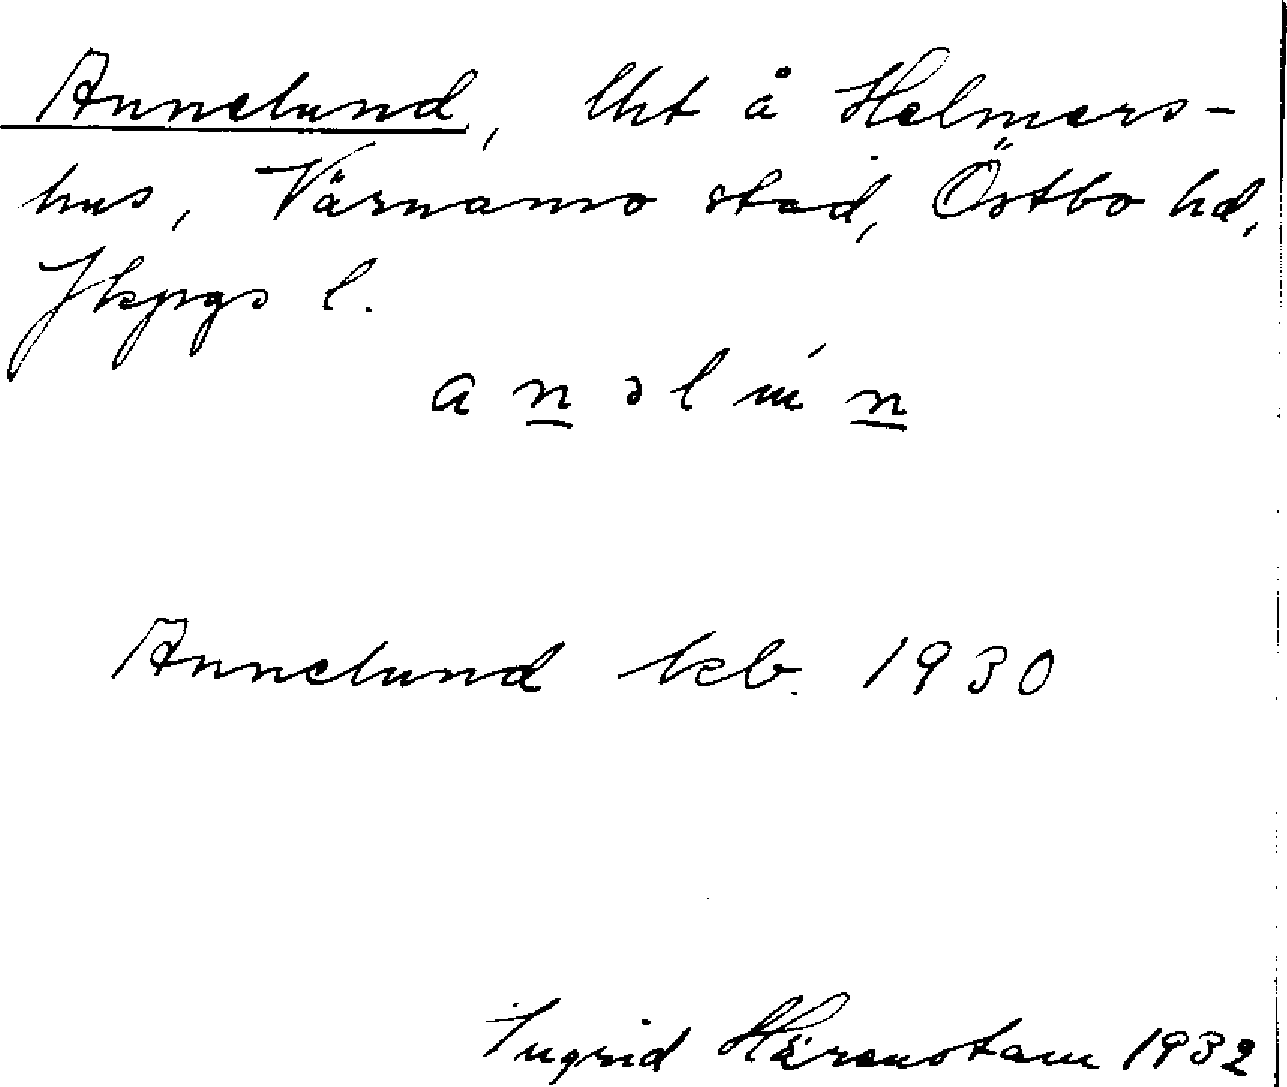 Annelund, lht å Helmers-
hus, Värnamo stad, Östbo hd,
Jkpgs l.
a n ə l ú n
Annelund kb. 1930
Ingrid Härenstam 1932